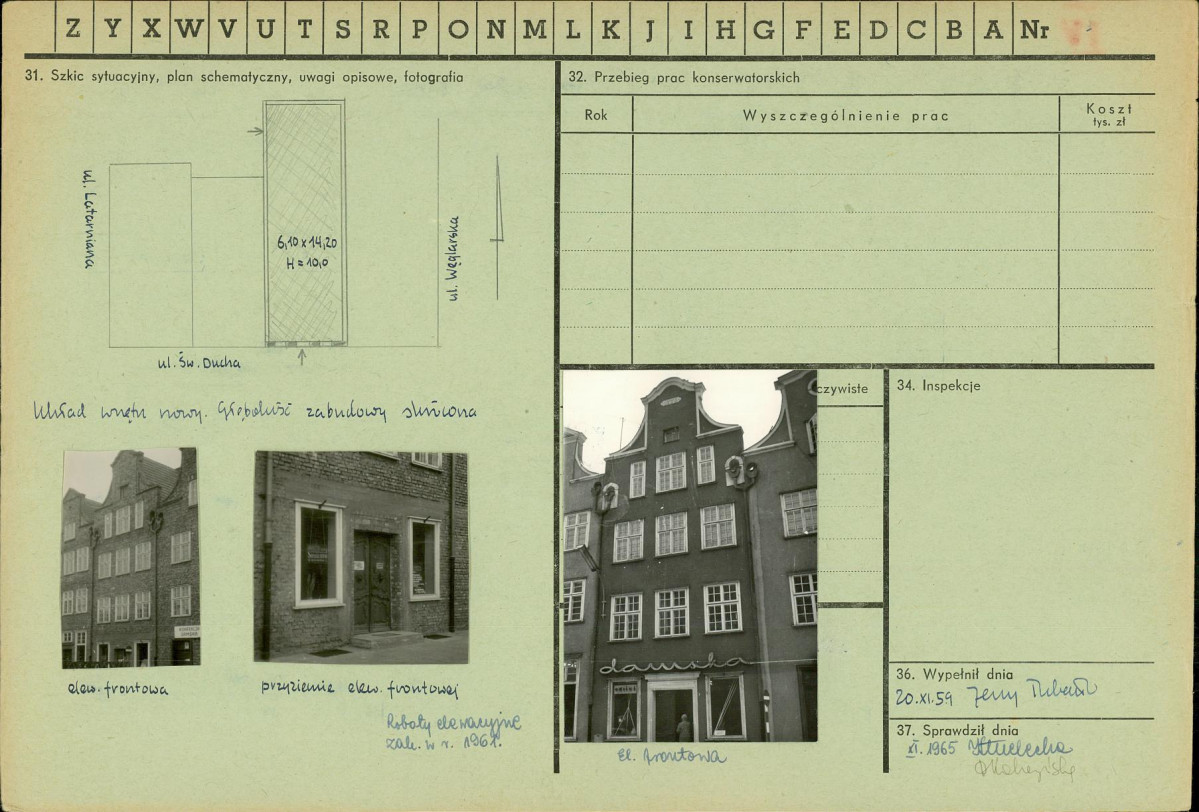 Z Y X W V U T S R P O N M L K J I H G F E D C B A Nr
31. Szkic sytuacyjny, plan schematyczny, uwagi opisowe, fotografia
ul. Latarniana
6,10 x 14,20
H = 10,0
ul. Węglarska
ul. Św. Ducha
Układ wnętrz nowy. Głębokość zabudowy skrócona
elew. frontowa
przyziemie elew. frontowej
Roboty elewacyjne
zak. w r. 1961.
32. Przebieg prac konserwatorskich
Rok
Wyszczególnienie prac
Koszt
tys. zł
czywiste
damska
El. frontowa
34. Inspekcje
36. Wypełnił dnia
20.XI.59 Jerzy
37. Sprawdził dnia
XI. 1965